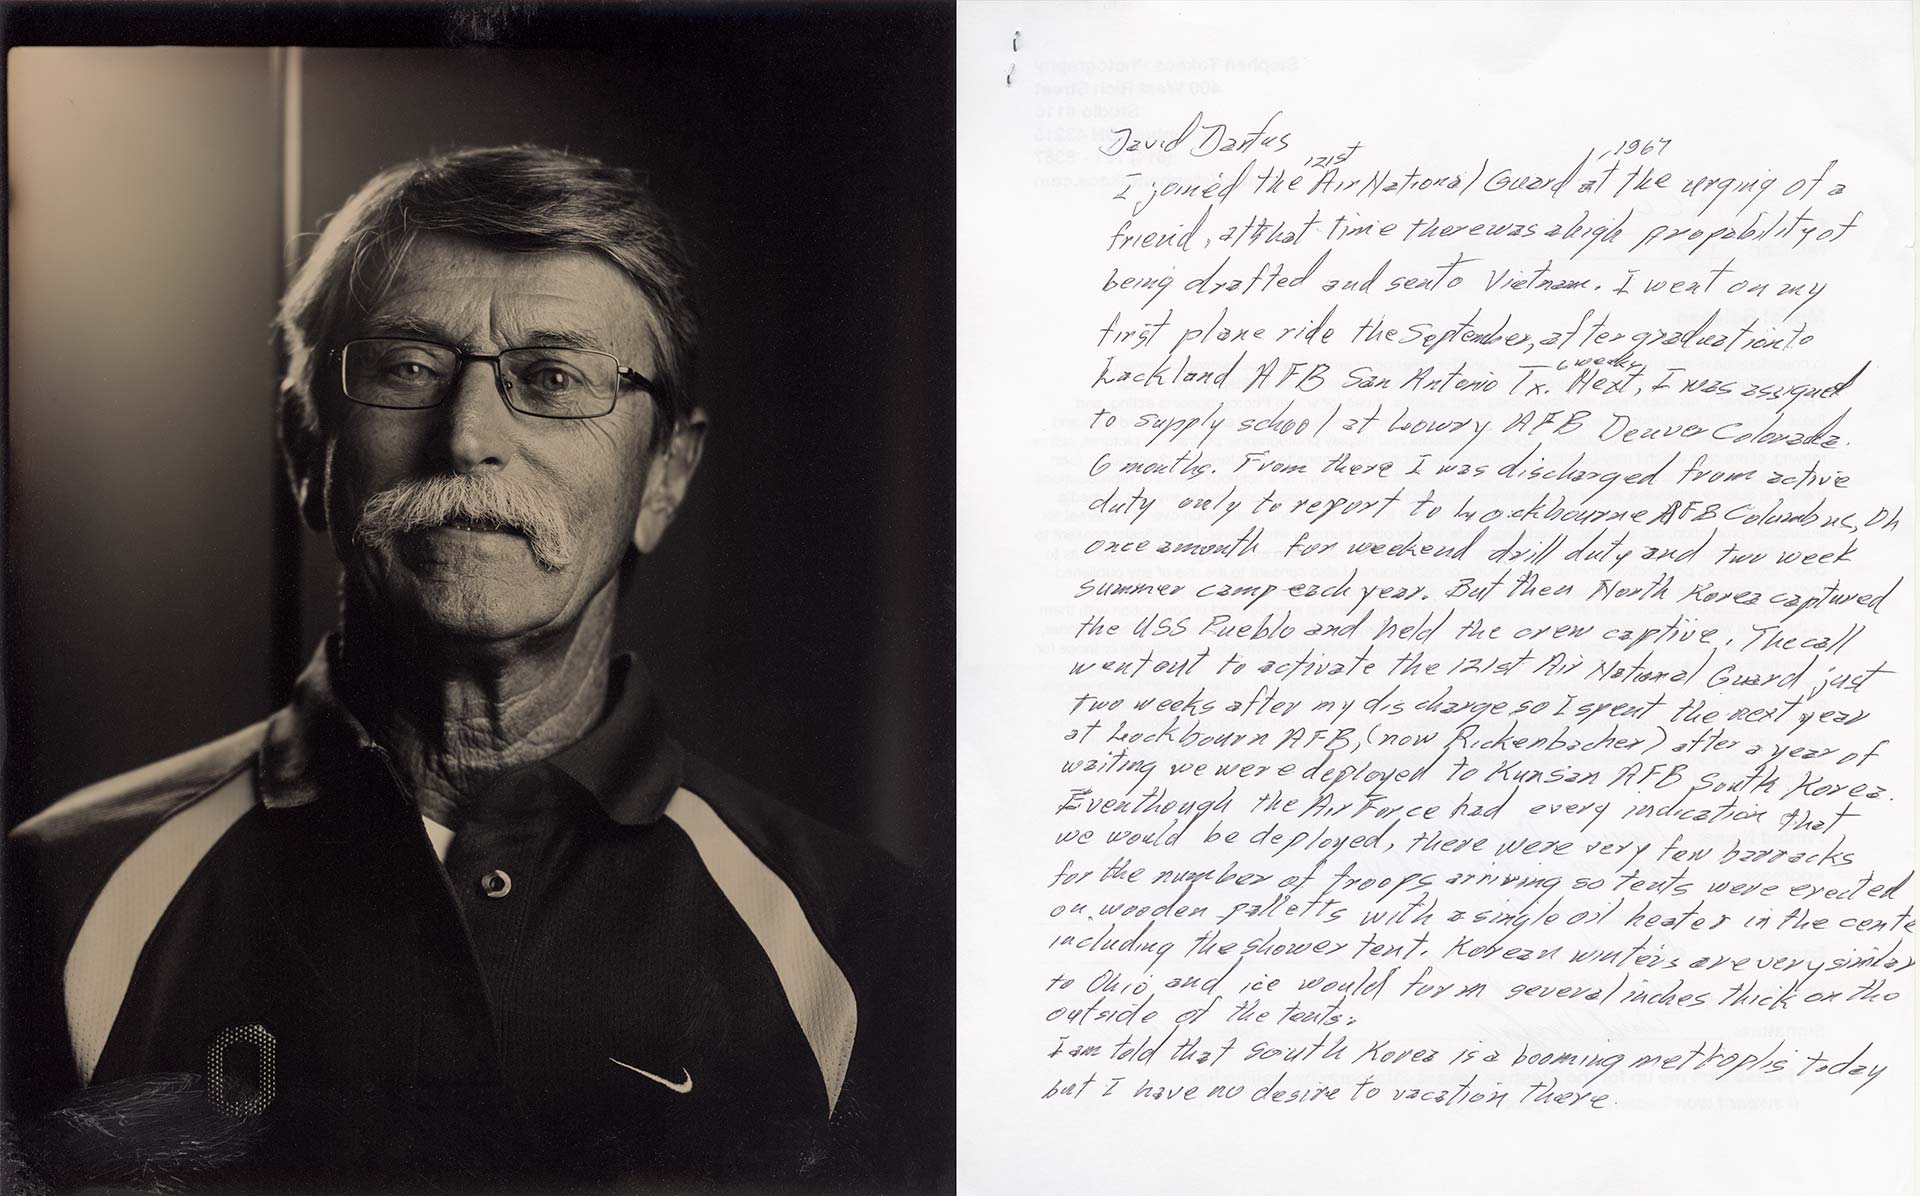 David Dantus
I joined the 121st Air National Guard, 1967 at the urging of a
friend, at that time there was a high propability of
being drafted and sent to Vietnam. I went on my
first plane ride the September, after graduation to
Lackland AFB San Antonio Tx. 6 weeks Next, I was assigned
to supply school at Lowry AFB Denver Colorada.
6 months. From there I was discharged from active
duty only to report to Lockbourne AFB Columbus, Oh
once a month for weekend drill duty and two week
summer camp each year. But then North Korea captured
the USS Pueblo and held the crew captive. The call
went out to activate the 121st Air National Guard just
two weeks after my discharge so I spent the next year
at Lockbourn AFB, (now Rickenbacher) after a year of
waiting we were deployed to Kunsan AFB South Korea.
Eventhough the Air Force had every indication that
we would be deployed, there were very few barracks
for the number of troops arriving so tents were erected
on wooden palletts with a single oil heater in the cente
including the shower tent. Korean winters are very similar
to Ohio and ice would form several inches thick on the
outside of the tents.
I am told that South Korea is a booming mettroplis today
but I have no desire to vacation there.